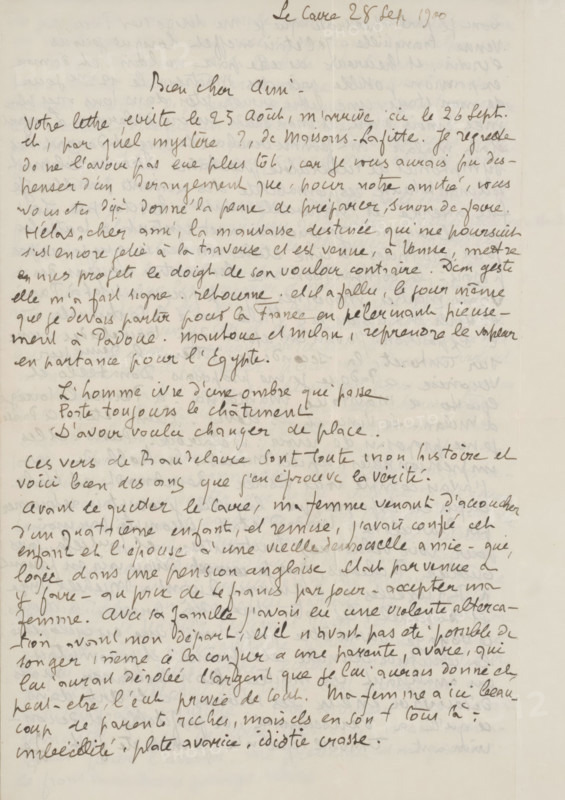 Le Caire 28 Sep. 1900
Bien cher Ami -
Votre lettre, écrite le 25 Août, m'arrive ici le 26 Sept.
et, par quel mystère ?, de Maisons-Lafitte. Je regrette
de ne l'avoir pas eue plus tôt, car je vous aurais pu dis-
penser d'un dérangement que, pour notre amitié, vous
vous etes déjà donné la peine de préparer, sinon de faire.
Hélas, cher ami, la mauvaise destinée qui me poursuit
s'est encore jetée à la traverse et est venue, à Venise, mettre
en mes projets le doigt de son vouloir contraire. D'un geste
elle m'a fait signe. retourne. et il a fallu, le jour même
que je devais partir pour la France en pélerinant pieuse-
ment à Padoue. Mantoue et Milan, reprendre le vapeur
en partance pour l'Egypte.
L'homme ivre d'une ombre qui passe
Porte toujours le châtiment
D'avoir voulu changer de place.
Ces vers de Baudelaire sont toute mon histoire et
voici bien des ans que j'en éprouve la vérité.
Avant de quitter le Caire, ma femme venant d'accoucher
d'un quatrième enfant, et remise, j'avais confié cet
enfant et l'épouse à une vieille demoiselle amie - qui,
logée dans une pension anglaise était parvenue à
y faire - au prix de 16 francs par jour - accepter ma
femme. Avec sa famille j'avais eu une violente alterca-
-tion avant mon départ, et il n'avait pas été possible de
songer même à la confier à une parente, avare, qui
lui aurait dérobé l'argent que je lui aurais donné et,
peut-etre, l'eut privée de tout. Ma femme a ici beau-
coup de parents riches, mais ils en sont tous là :
imbécillité, plate avarice, idiotie crasse.